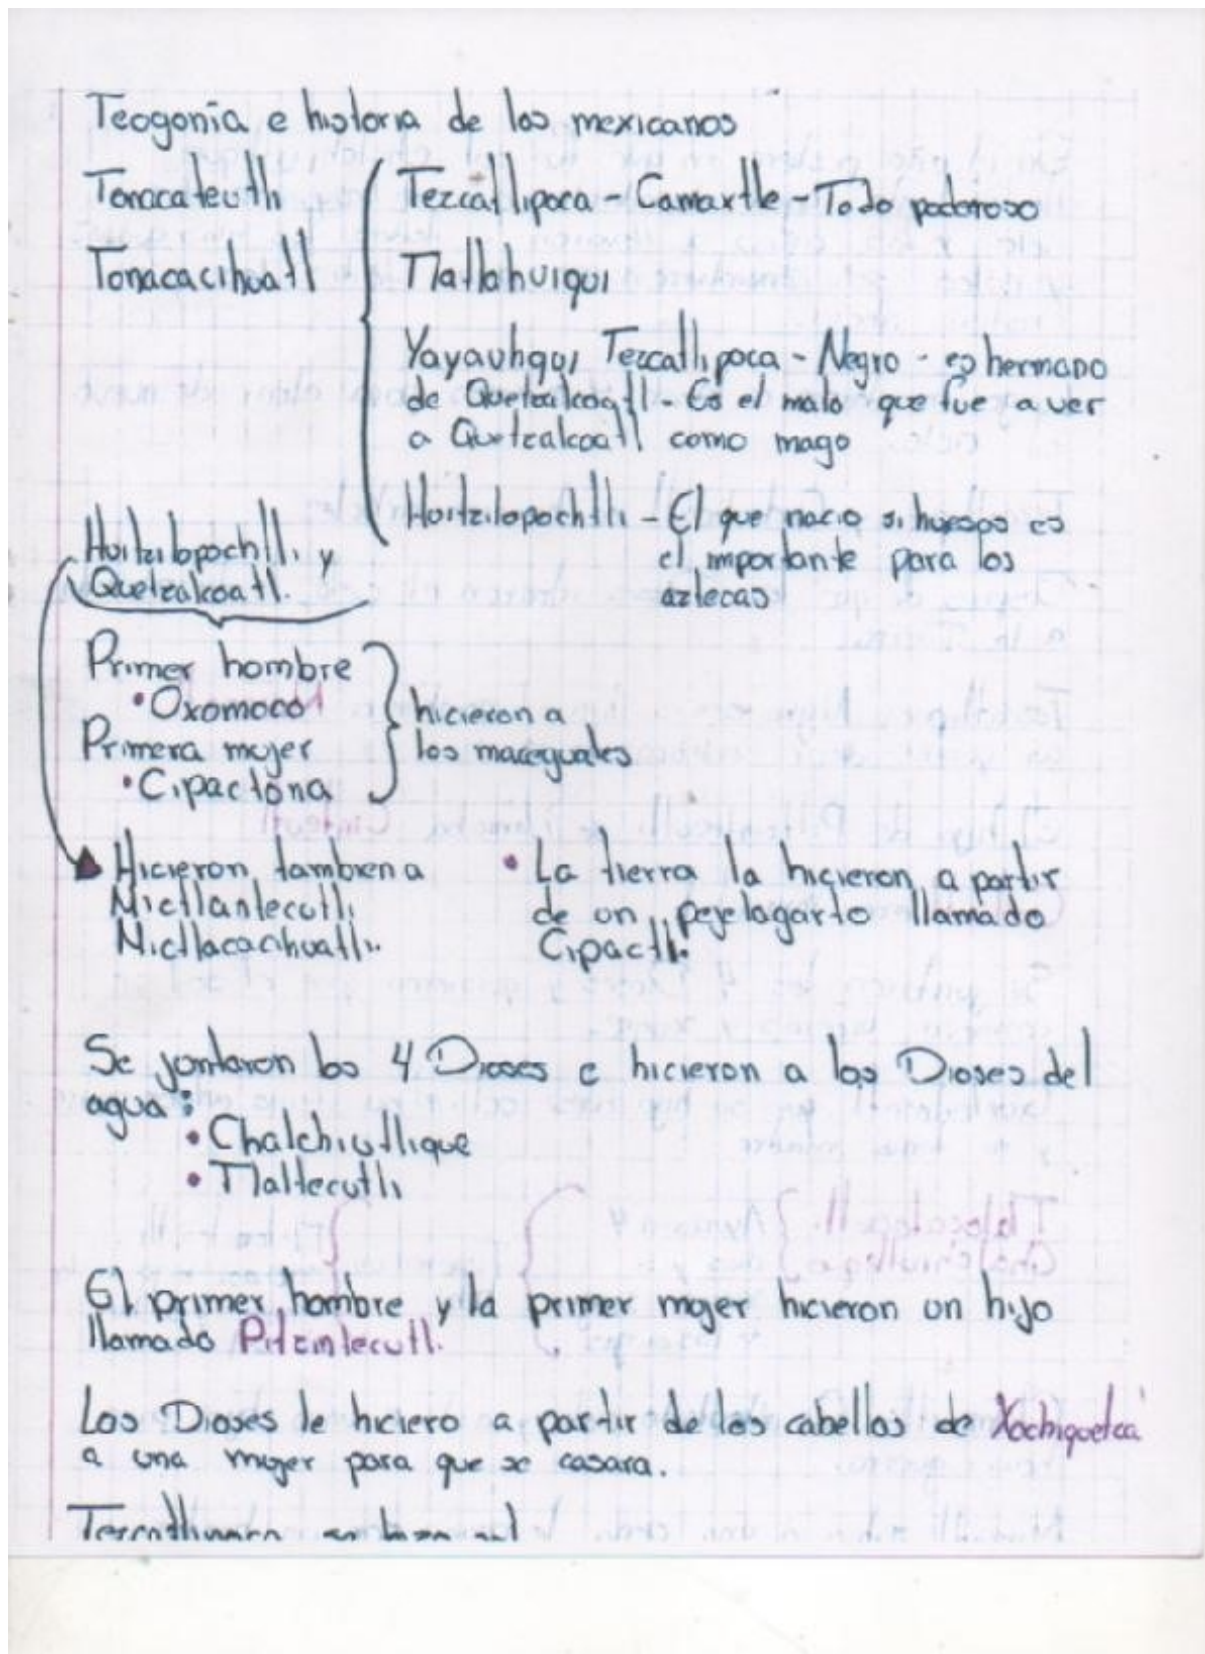 Teogonía e historia de los mexicanos
Tonacateutli
Tonacacihuatl
Tezcatlipoca - Camaxtle - Todo poderoso
Tlatlahuiqui
Yayauhqui Tezcatlipoca - Negro - es hermano
de Quetzalcoatl - Es el malo que fue a ver
a Quetzalcoatl como mago
Huitzilopochtli - El que nacio si huesos es
el importante para los
aztecas
Huitzilopochtli y
Quetzalcoatl.
Primer hombre
• Oxomoco
Primera mujer
• Cipactona
hicieron a
los maceguales
Hicieron tambien a
Mictlantecutli
Mictlacacihuatli.
• La tierra la hicieron a partir
de un pejelagarto llamado
Cipactli.
Se juntaron los 4 Dioses e hicieron a los Dioses del
agua:
• Chalchiutlique
• Tlaltecutli
El primer hombre y la primer mujer hicieron un hijo
llamado Pitzintecutli.
Los Dioses le hiciero a partir de los cabellos de Xochiquetza
a una mujer para que se casara.
Tezcatlipoca se hizo sol